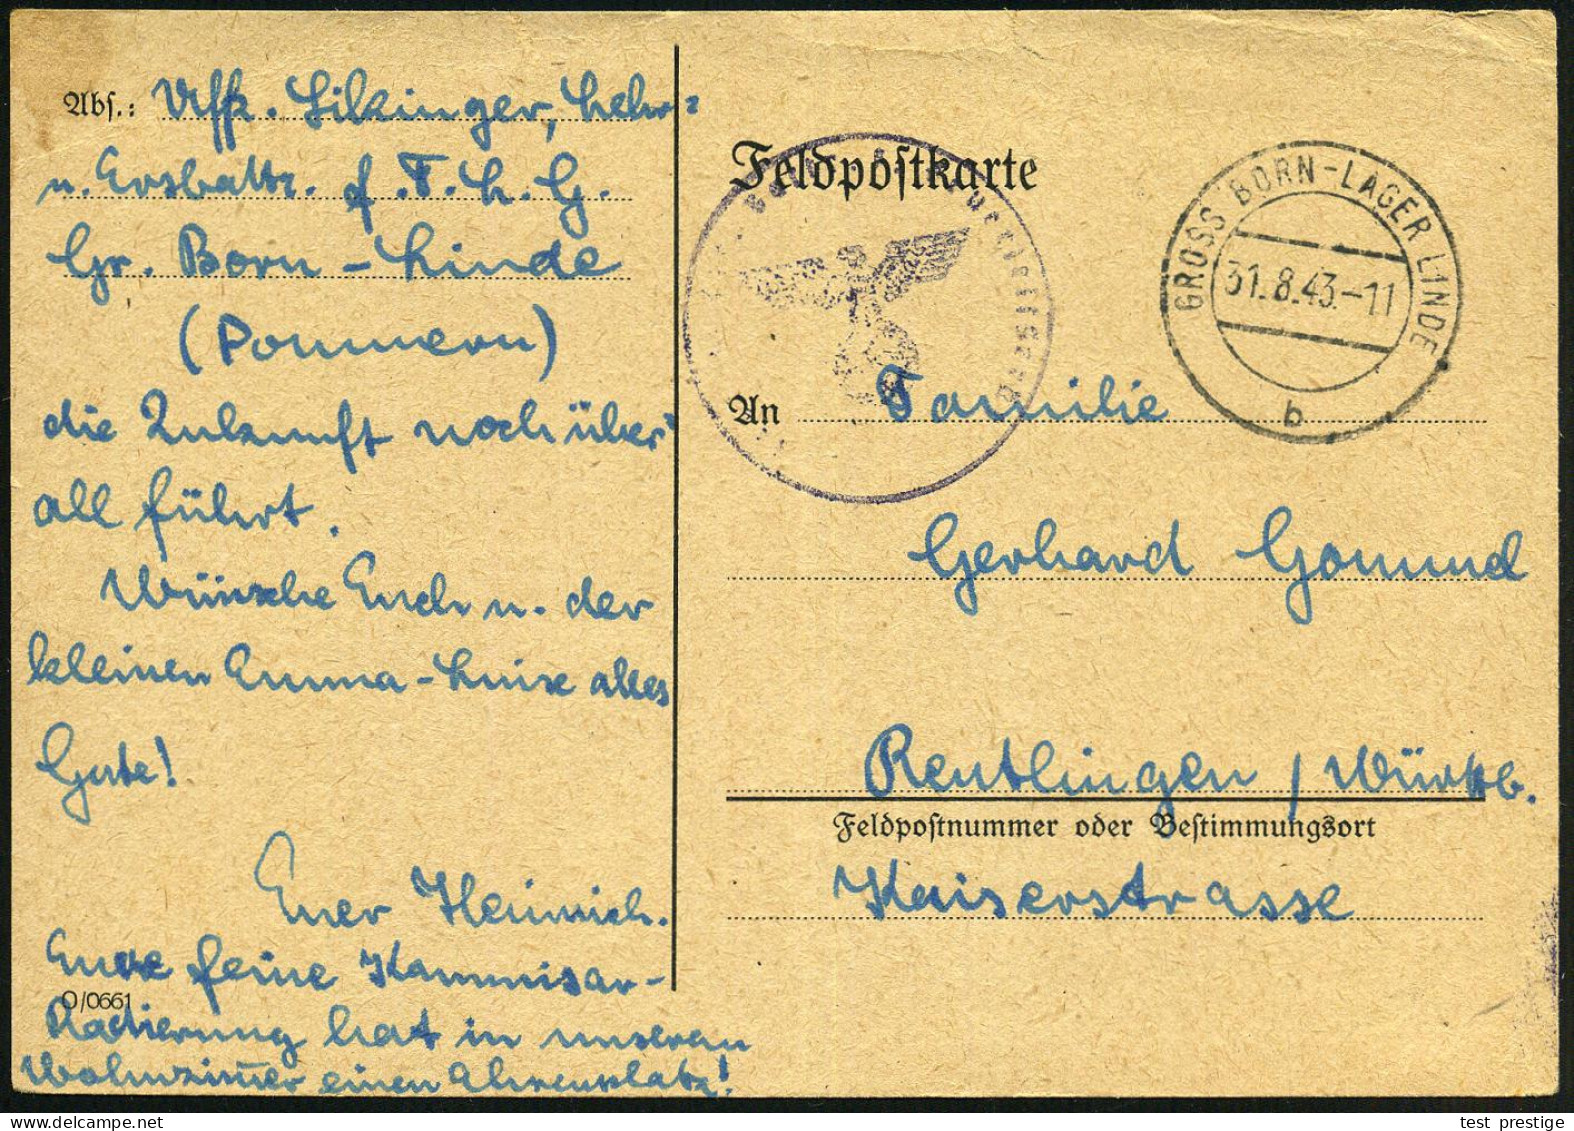 Abs.: Uffz. Sikinger, Lehr-
u. Ersbattr. f. F. L. G.
Gr. Born - Linde
(Pommern)
die Zukunft noch über-
all führt.
Wünsche Euch u. der
kleinen Emma-Luise alles
Gute!
Euer Heinrich.
Eure feine Kammisar-
O/0661
Radierung hat in unseren
Wohnzimmer einen Ahrenplatz!
Feldpostkarte
GROSS BORN-LAGER LINDE
31.8.43.-11
b
An Familie
Gerhard Gomund
Reutlingen / Württb.
Feldpostnummer oder Bestimmungsort
Kaiserstrasse
test prestige